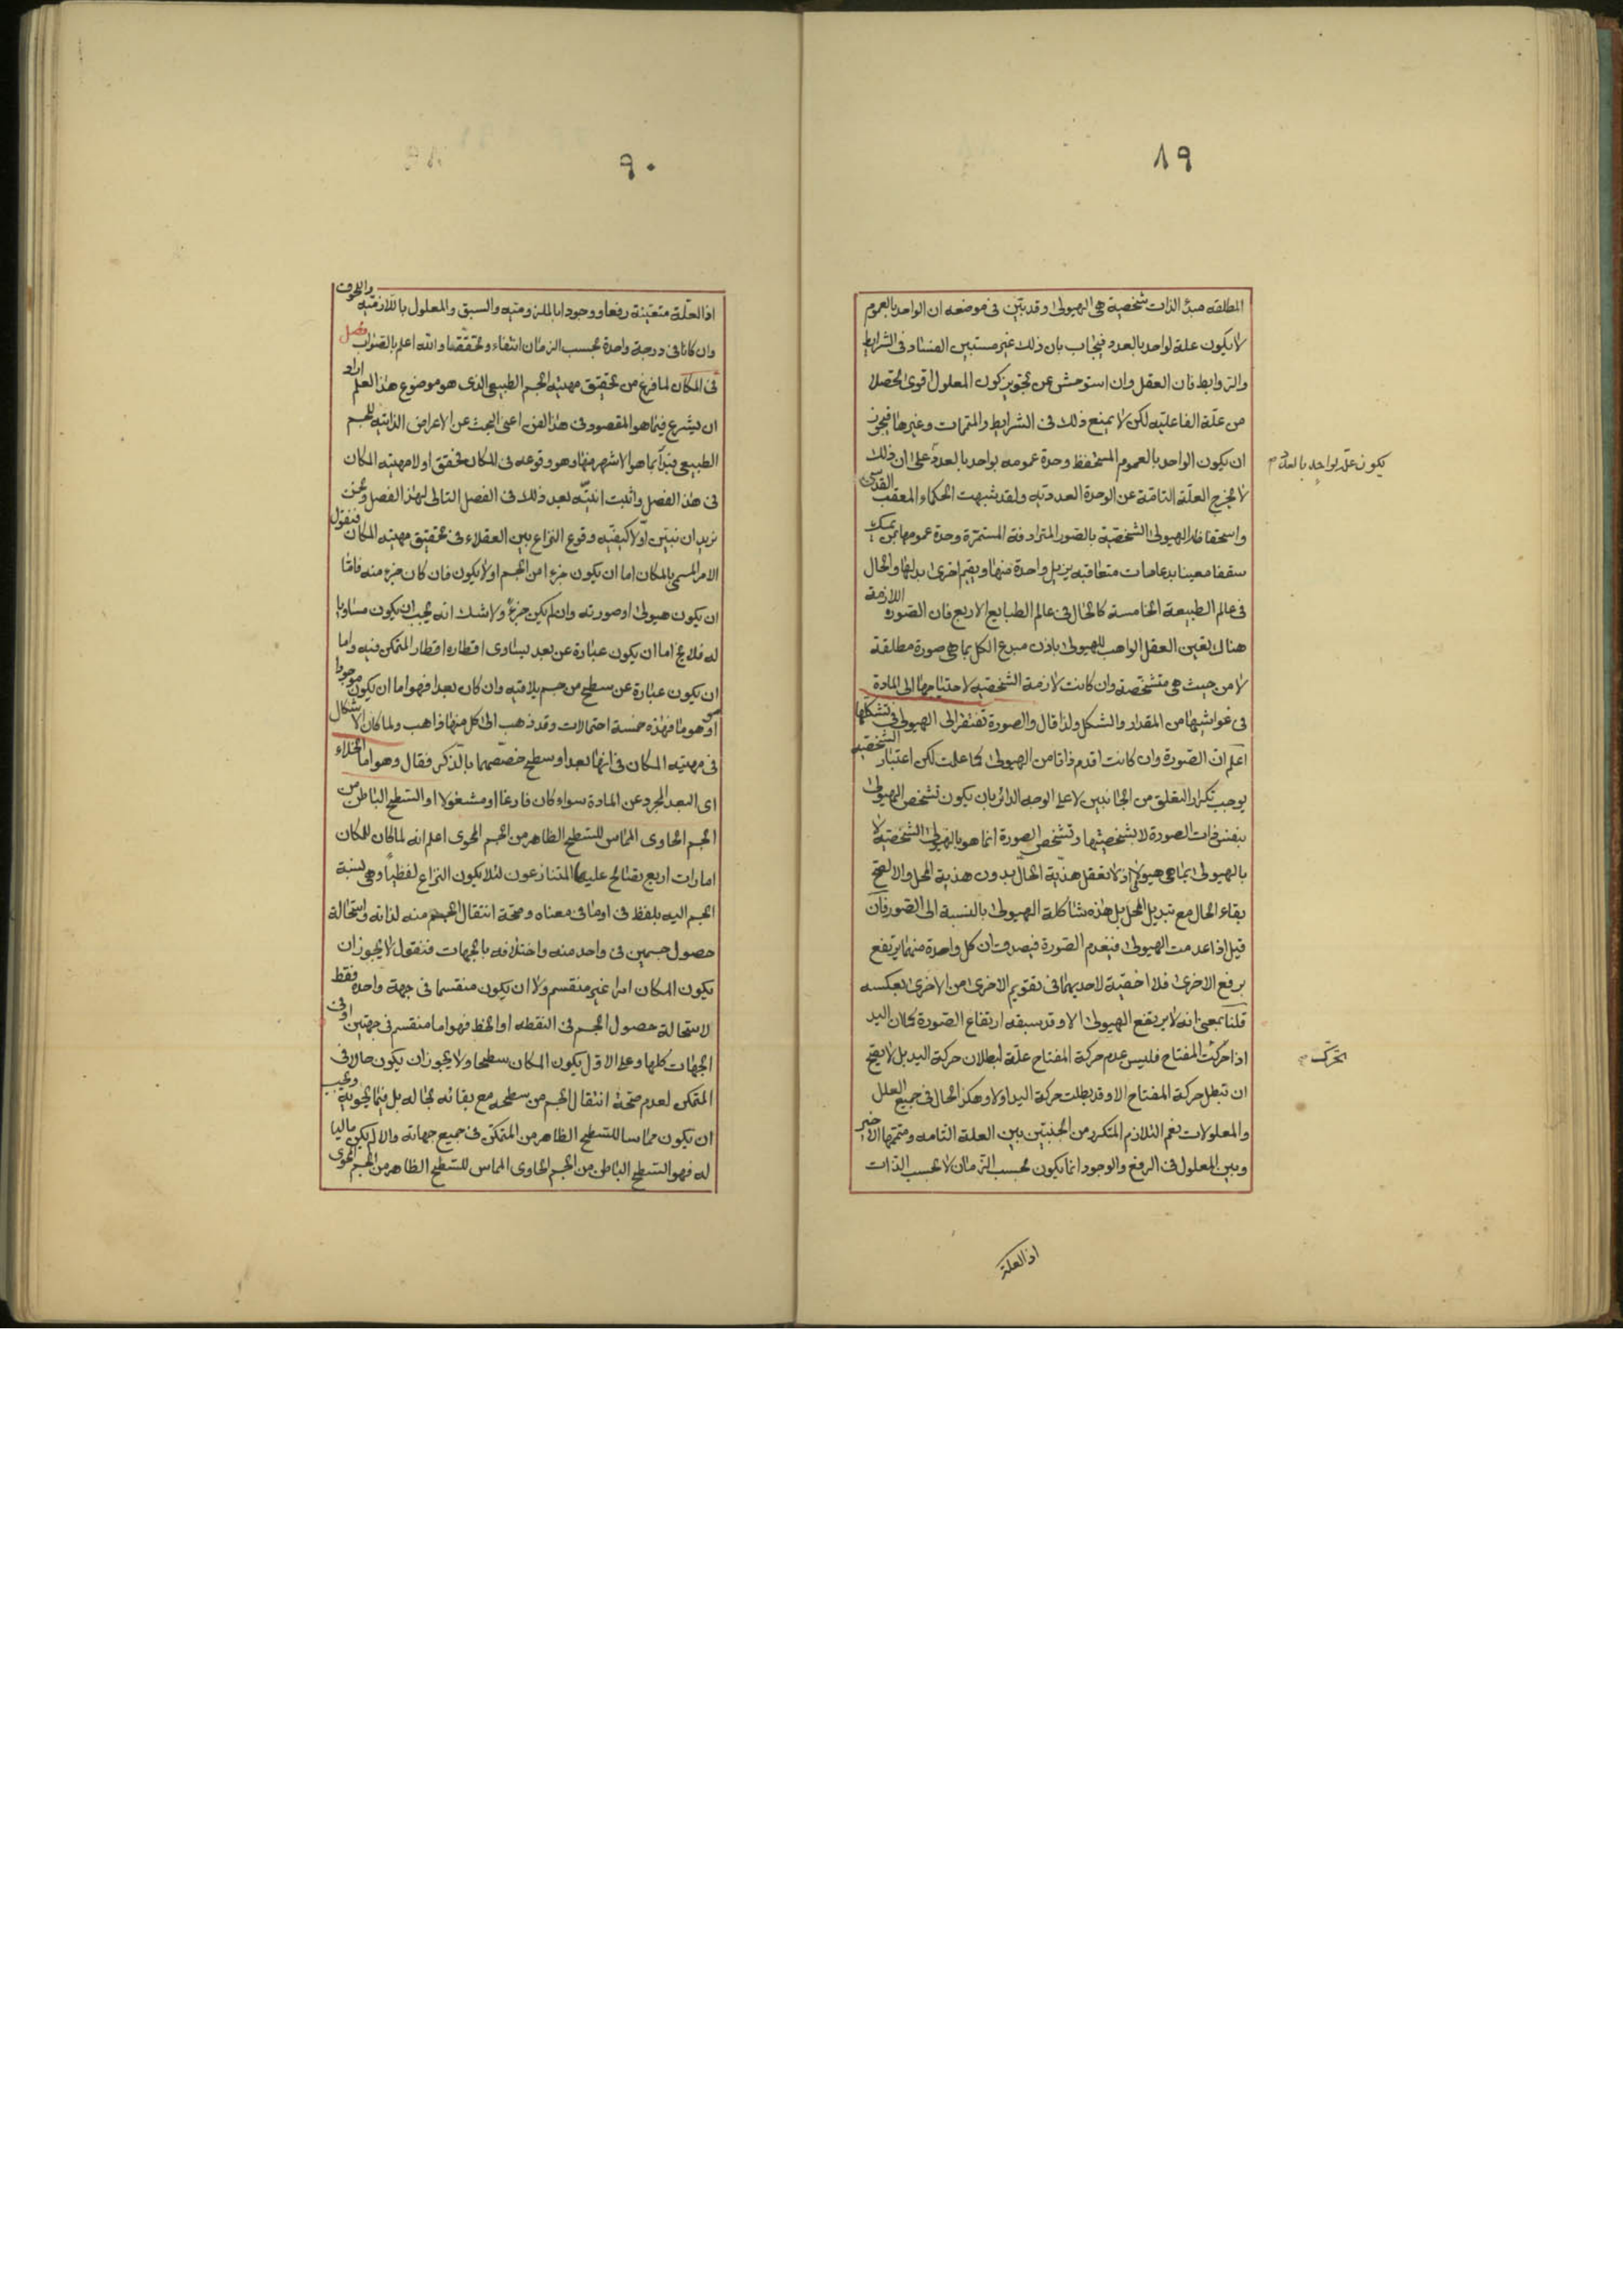 ٨٩
المطلقه مبدأ لذات شخصية هى الهيولى وقد تبيّن فى موضعه ان الواحد بالعموم
لا يكون علة لواحد بالعدد فيجاب بان ذلك غير مستبين الفساد فى الشرايط
والروابط فان العقل وان استوحش عن تجويز كون المعلول اقوى تحصلا
من علّة الفاعليه لكن لا يمنع ذلك فى الشرايط والمتممات وغيرها فيجوز
ان يكون الواحد بالعموم المستحفظ وحدة عمومه بواحد بالعدد على ان ذلك
يكون علة لواحد بالعدد م
لا يخرج العلّة التامّة عن الوحدة العدديّه ولقد شبهت الحكماء المعقب القدسى
واستحفاظه الهيولى الشخصّية بالصور المترادفة المستمرّة وحدة عمومها بمن يمسك
سقفا معينا بدعامات متعاقبه يزيل واحدة منها ويقيم اخرى بدلها والحال
فى عالم الطبيعة الخامسة كالحال فى عالم الطبايع الاربع فان الصّورة اللازمة
هناك يعين العقل الواهب للهيولى باذن مبدع الكل بما هى صورة مطلقة
لا من حيث هى متشخّصة وان كانت لازمة الشخصّيه لاحتياجها الى المادة
فى غواشيها من المقدار والشكل ولذا قال والصورة تفتقر الى الهيولى فى تشكلها
اعلم انّ الصّورة وان كانت اقدم ذاتا من الهيولى كما علمت لكن اعتبار الشخصّيه
يوجب تكرار التعلق من الجانبين لا على الوجه الدائر بان يكون تشخص الهيولى
بنفس ذات الصورة لا بشخصيتها وتشخص الصورة انما هو بالهيولى الشخصية لا
بالهيولى بما هى هيولى اذ لا تعقل هذية الحالّ بدون هذية المحل والا لصح
بقاء الحال مع تبديل المحل بل هذه شاكلة الهيولى بالنسبة الى الصّور فان
قيل اذا عدمت الهيولى فينعدم الصّورة فيصدق ان كل واحدة منهما يرتفع
برفع الاخرى فلا احقية لاحديهما فى تقويم الاخرى من الاخرى بعكسه
قلنا بمعنى انه لا يرتفع الهيولى الا وقد سبقه ارتفاع الصّورة كما ان اليد
اذا حركت المفتاح فليس عدم حركة المفتاح علّة لبطلان حركة اليد بل لا يصحّ
تحرك م
ان تبطل حركة المفتاح الا وقد بطلت حركة اليد اولا وهكذا الحال فى جميع العلل
والمعلولات نعم التلازم المتكرر من الجنبتين بين العلة التامه ومتممها الاخير
وبين المعلول فى الرفع والوجود انما يكون بحسب الزّمان لا بحسب الذّات
اذ العلة
٩٠
اذ العلّة متعيّنة رفعا ووجودا بالملزوميّه والسبق والمعلول باللّازميّه واللحوق
وان كانا فى درجة واحدة بحسب الزمان انتفاء وتحققا والله اعلم بالصّواب فصل
فى المكان لما فرغ من تحقيق مهيّة الجسم الطبيعى الذى هو موضوع هذا العلم اراد
ان يشرع فيما هو المقصود فى هذا الفن اعنى البحث عن الاعراض الذاتيه للجسم
الطبيعى فبدأ بما هو الاشهر منها وهو وقوعه فى المكان فحقق اولا مهيته المكان
فى هذا الفصل واثبت انيّته بعد ذلك فى الفصل التالى لهذا الفصل ونحن
نريد ان نبيّن اوّلا كيفيّه وقوع النزاع بين العقلاء فى تحقيق مهيته المكان فنقول
الامر المسمى بالمكان اما ان يكون جزءا من الجسم او لا يكون فان كان جزء منه فامّا
ان يكون هيولى او صورته وان لم يكن جزءً ولا شك انه يجب ان يكون مساويا
له فلا يخ اما ان يكون عبارة عن بعد يساوى اقطاره اقطار المتمكن فيه واما
ان يكون عبارة عن سطح من جسم يلاقيه وان كان بعدا فهو اما ان يكون موجودا
او موهوما فهذه خمسة احتمالات وقد ذهب الى كل منها ذاهب ولما كان الاشكال
فى مهيّته المكان فى انها بعد او سطح خصّصهما بالذّكر فقال وهو اما الخلاء
اى البعد المجرد عن المادة سواء كان فارغا او مشغولا او السّطح الباطن من
الجسم الحاوى المماس للسّطح الظاهر من الجسم المحوى اعلم انه لما كان للمكان
امارات اربع يصالح عليها المتنازعون لئلا يكون النزاع لفظيا وهى نسبة
الجسم اليه بلفظ فى او ما فى معناه وصحّة انتقال الجسم منه لذاته واستحالة
حصول جسمين فى واحد منه واختلافه بالجهات فنقول لا يجوز ان
يكون المكان امرا غير منقسم ولا ان يكون منقسما فى جهة واحدة فقط
لاستحالة حصول الجسم فى النقطه او الخط فهو اما منقسم فى جهتين او فى
الجهات كلها وعلى الاوّل يكون المكان سطحا ولا يجوز ان يكون حالا فى
المتمكن لعدم صحّة انتقال الجسم من سطحه مع بقائه بحاله بل فيما يحويه ويجب
ان يكون مماسا للسّطح الظاهر من المتمكن فى جميع جهاته والا لم يكن ماليا
له فهو السّطح الباطن من الجسم الحاوى المماس للسّطح الظاهر من الجسم المحوى